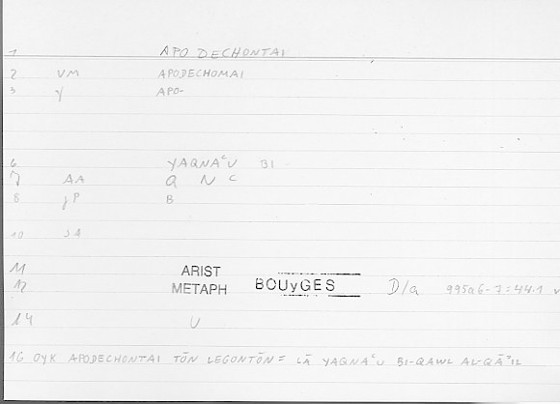 1 APODECHONTAI
2 VM APODECHOMAI
3 γ APO-
6 YAQNAᶜU BI-
7 AA Q N C
8 γP B
10 SA
11 ARIST
12 METAPH BOUyGES D/a 995a6-7=44.1
14 U
16 OYK APODECHONTAI TŌN LEGONTŌN = LĀ YAQNAᶜU BI-QAWL AL-QĀʾIL